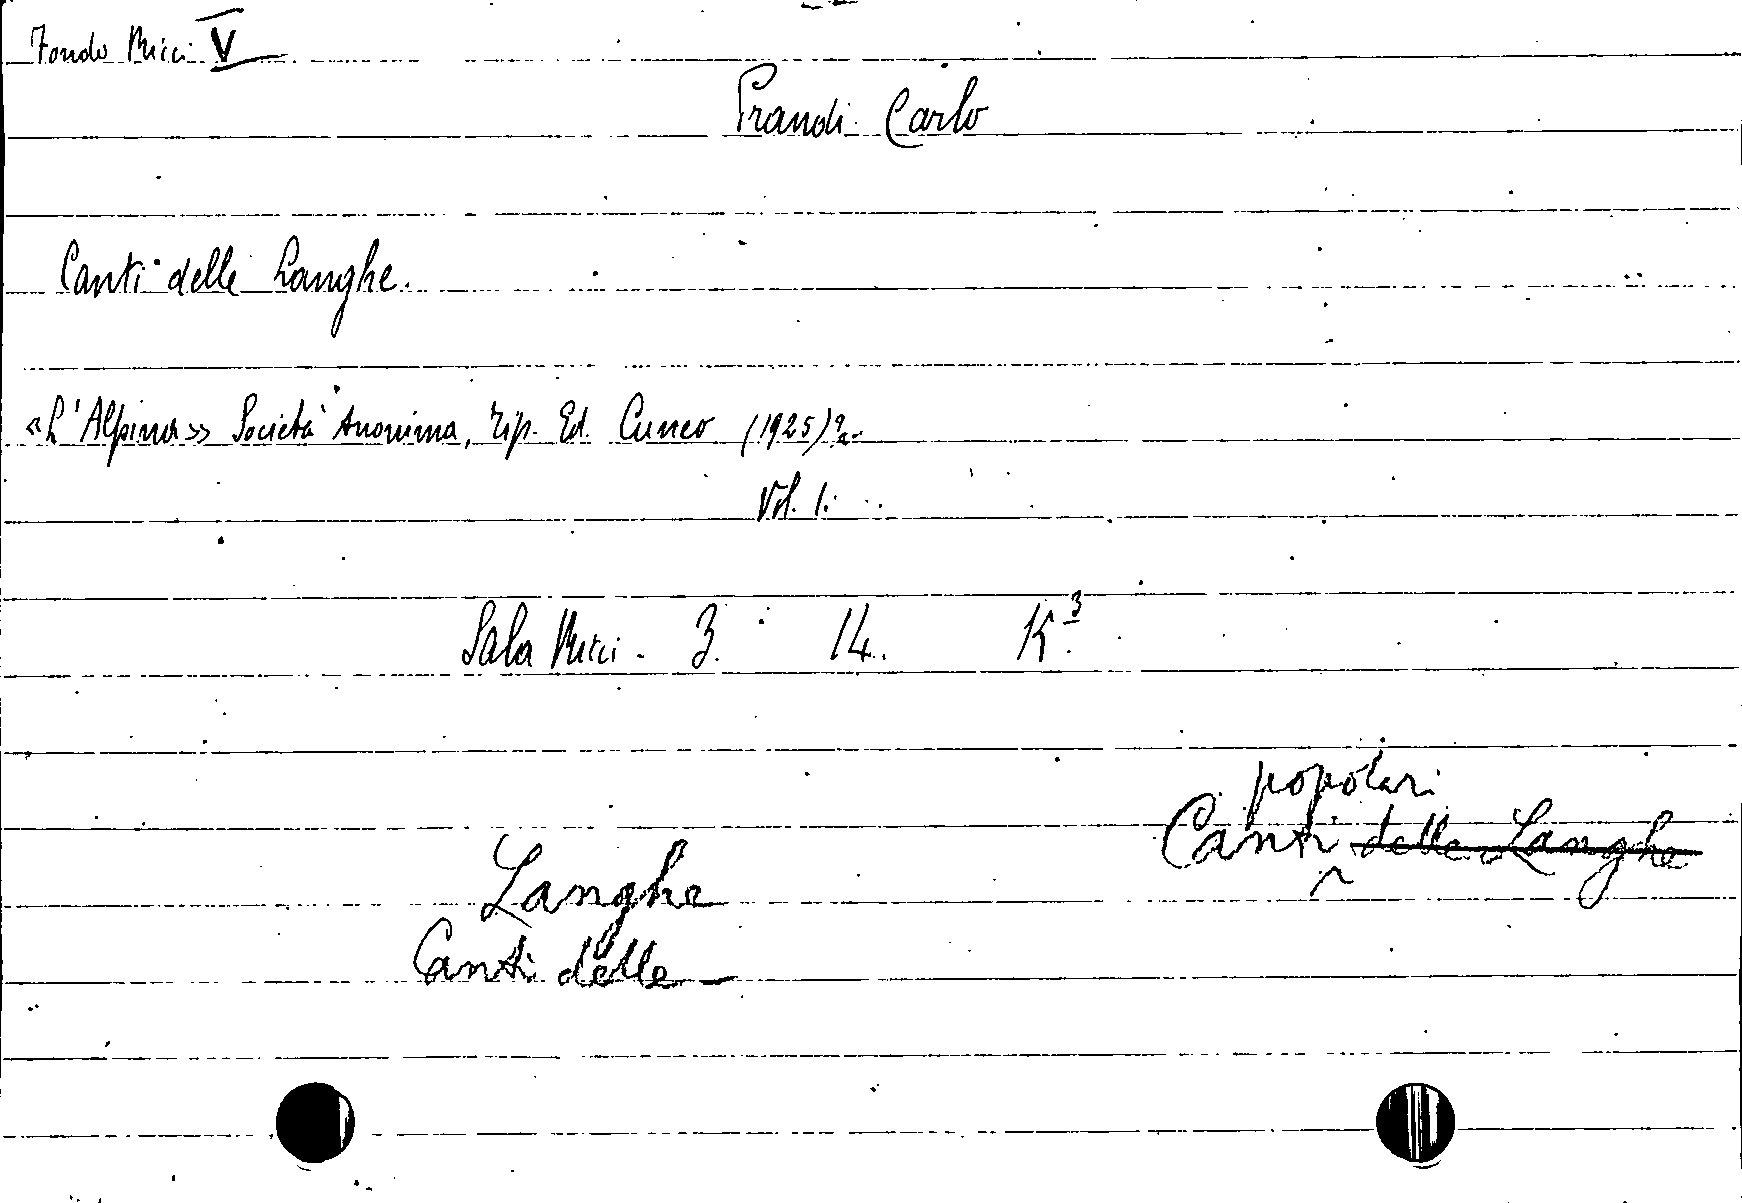 Fondo Mici V
Prandi Carlo
Canti delle Langhe.
«L'Alpina» Società Anonima, Tip. Ed. Cuneo (1925)?
Vol. 1.
Sala Mici. 3. 14. K³.
popolari
Canti delle Langhe
Langhe
Canti delle